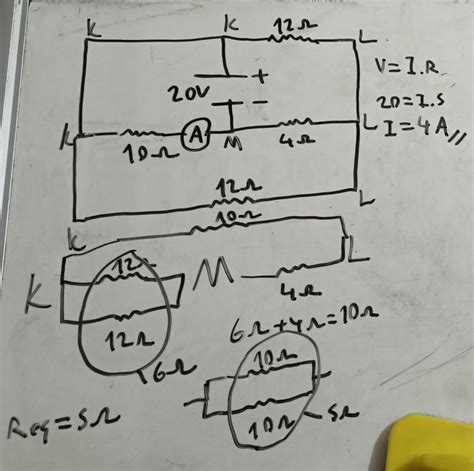 K K 12Ω L
+
20V -
V = I.R
20 = I.5
I = 4A //
K 10Ω A M 4Ω L
12Ω
K L
10Ω
K 12 M L
12Ω 4Ω
6Ω
6Ω + 4Ω = 10Ω
10Ω
10Ω
5Ω
Req = 5Ω